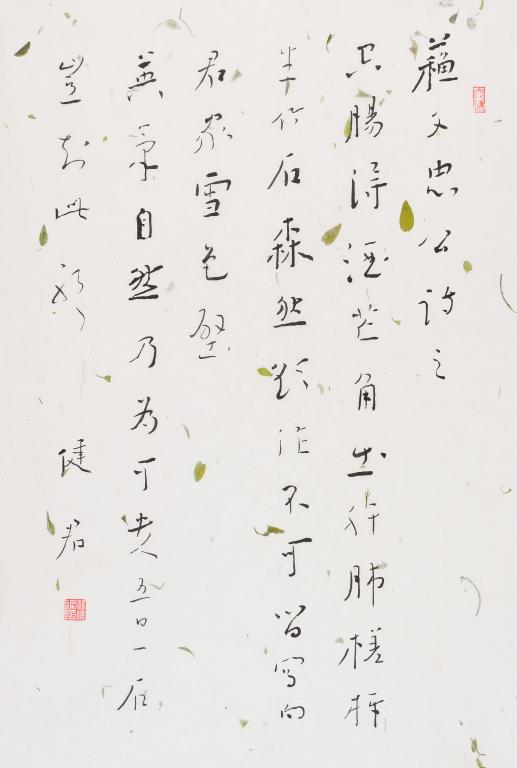 蘇文忠公詩之
空腸得酒芒角出肝肺槎枒
生竹石森然欲作不可留寫向
君家雪色壁
氣自然乃為可五日一石
豈知此耶 健君